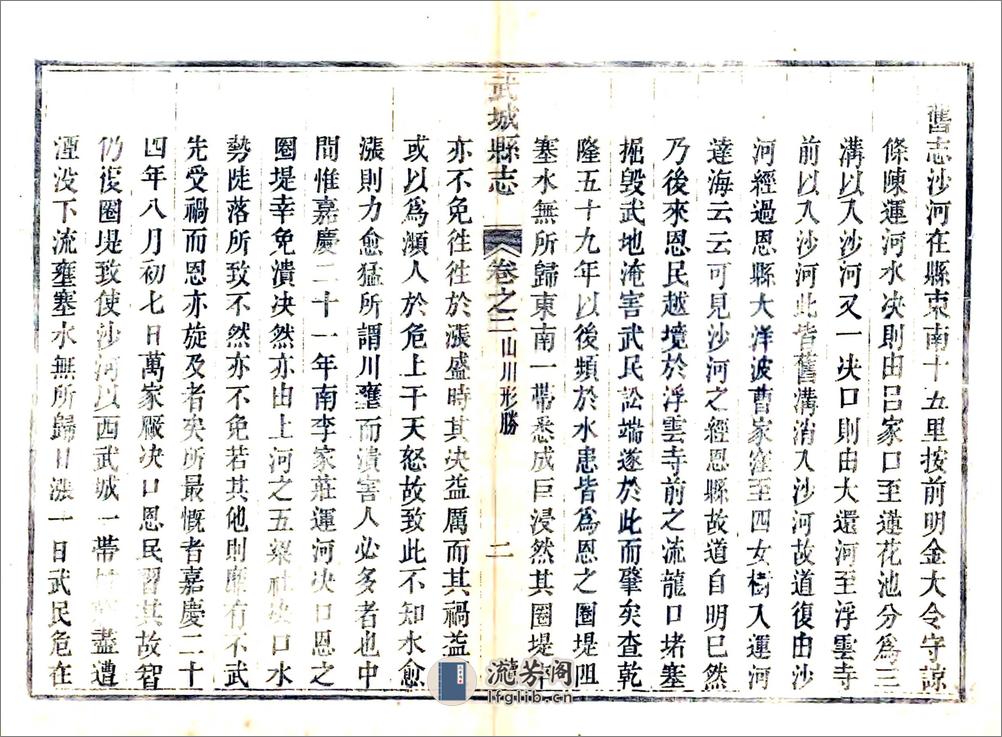 舊志沙河在縣東南十五里按前明金大令守諒
條陳運河水决則由呂家口至蓮花池分爲三
溝以入沙河又一决口則由大還河至浮雲寺
前以入沙河此皆舊溝消入沙河故道復由沙
河經過恩縣大洋波曹家窪至四女樹入運河
達海云云可見沙河之經恩縣故道自明已然
乃後來恩民越境於浮雲寺前之流龍口堵塞
掘毀武地淹害武民訟端遂於此而肇矣查乾
隆五十九年以後頻於水患皆爲恩之圈堤阻
塞水無所歸東南一帶悉成巨浸然其圈堤卒
武城縣志
卷之二山川形勝
二
亦不免往往於漲盛時其决益厲而其禍益
或以爲瀕人於危上干天怒故致此不知水愈
漲則力愈猛所謂川壅而潰害人必多者也中
間惟嘉慶二十一年南李家莊運河决口恩之
圈堤幸免潰决然亦由上河之五梁社决口水
勢陡落所致不然亦不免若其他則靡有不武
先受禍而恩亦旋及者矣所最慨者嘉慶二十
四年八月初七日萬家厫决口恩民習其故智
仍復圈堤致使沙河以西武城一帶盡遭
湮没下流壅塞水無所歸日漲一日武民危在
瀧芳閣
lfglib.cn